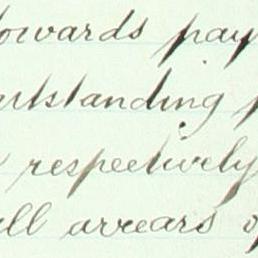 towards pay
outstanding p
respectively
all arrears of